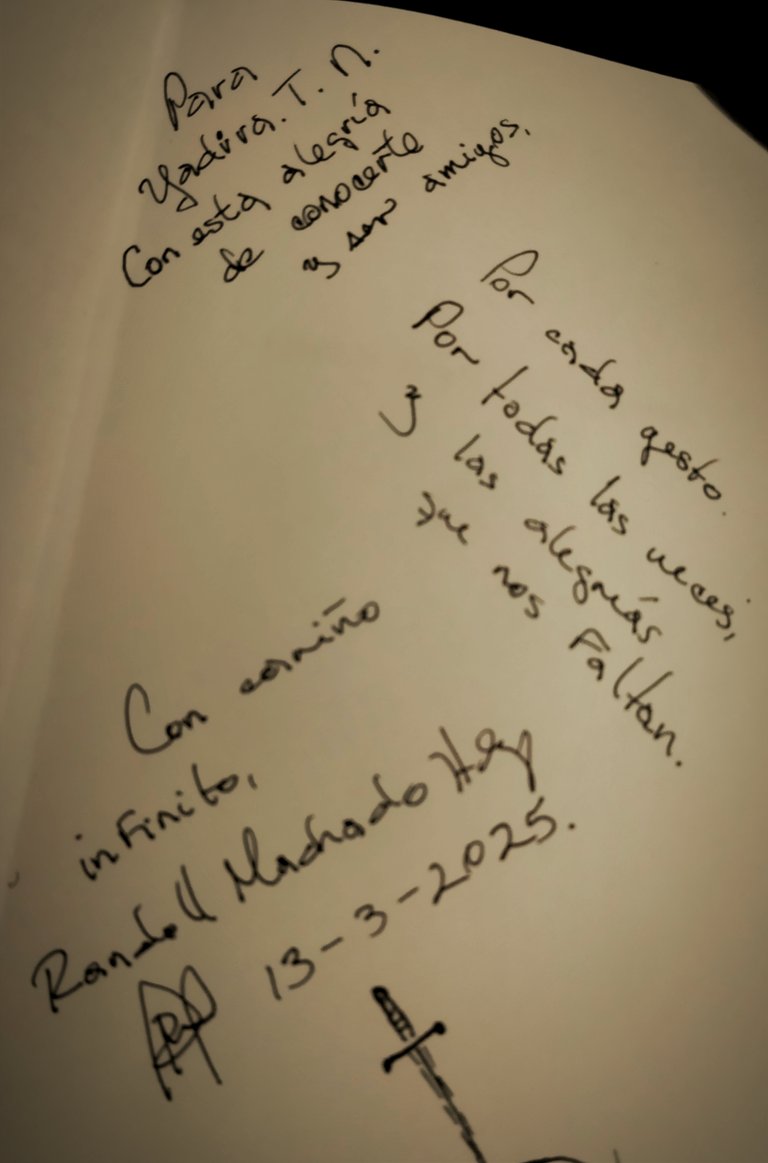 Para
Yadira. T. N.
Con esta alegría
de conocerte
y ser amigos,
Por cada gesto.
Por todas las veces,
y las alegrías
que nos Faltan.
Con cariño
infinito,
Randall Machado
13-3-2025.